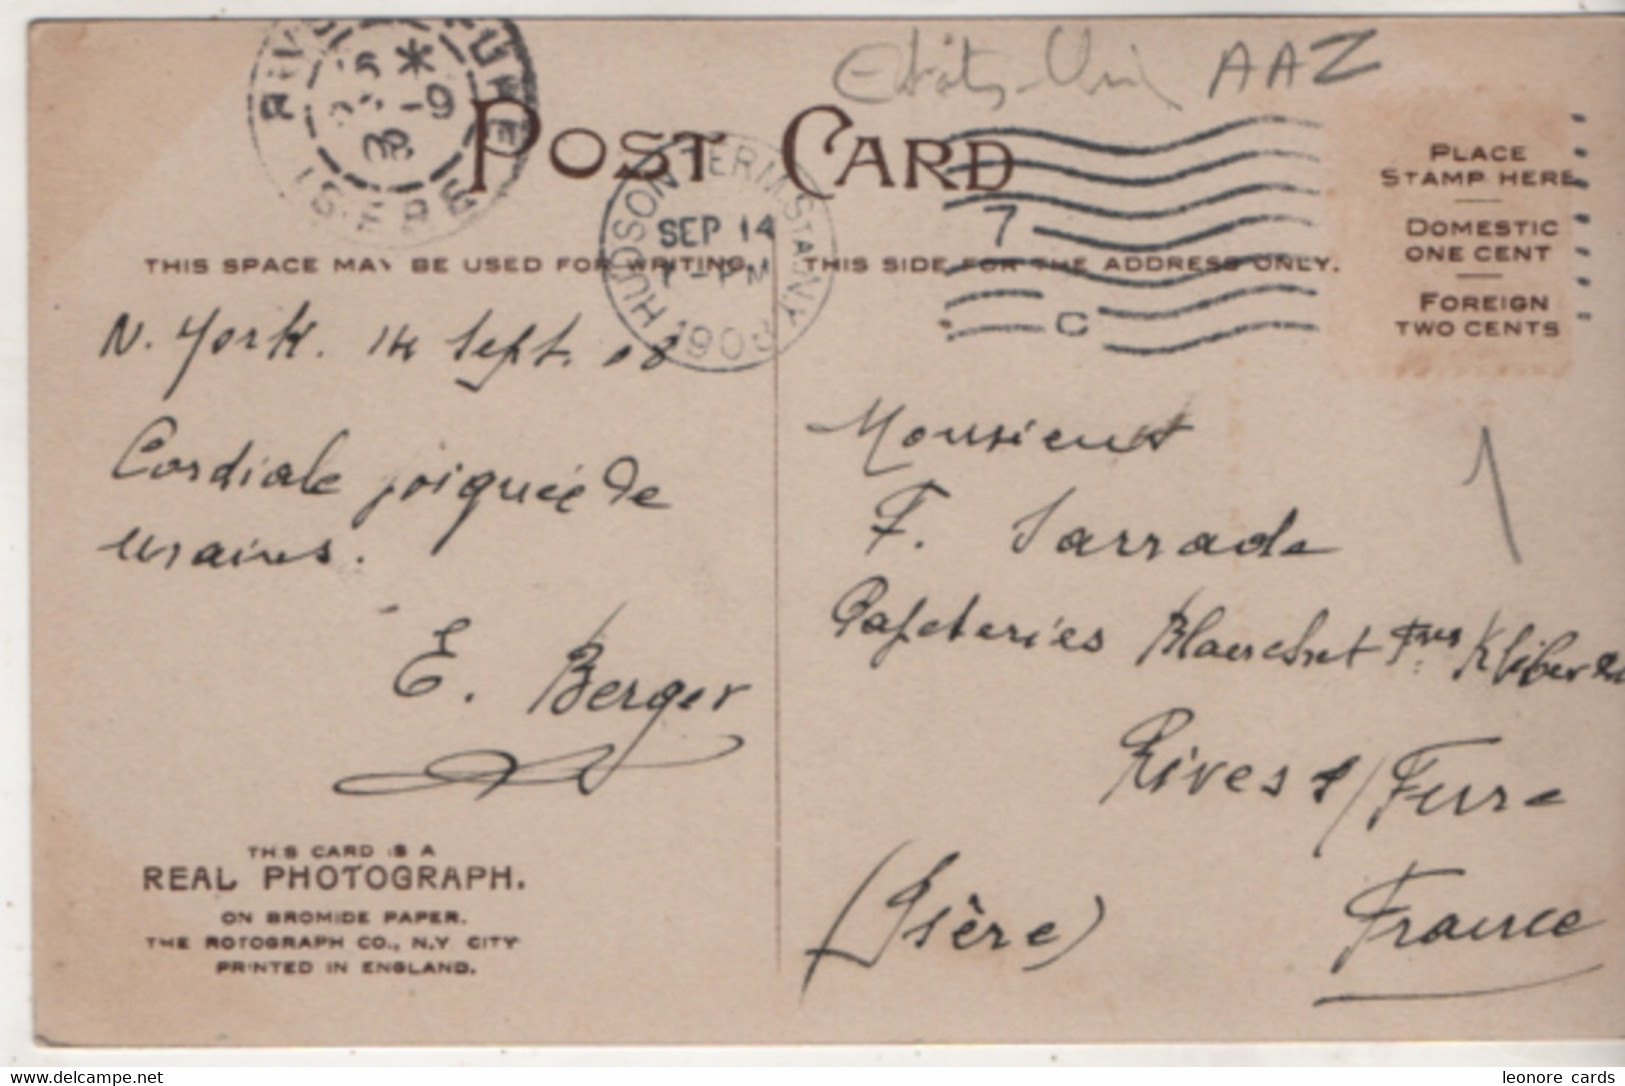 Etats-Unis AAZ
POST CARD
PLACE
STAMP HERE
DOMESTIC
ONE CENT
FOREIGN
TWO CENTS
HUDSON TERM. STA. N.Y.
SEP 14
7 - PM
1908
7
C
ISÈRE
THIS SPACE MAY BE USED FOR WRITING.
THIS SIDE FOR THE ADDRESS ONLY.
N. York. 14 Sept. 08
Cordiale poignée de
mains.
E. Berger
Monsieur
F. Sarrade
Papeteries Blanchet Fres Kléber
Rives s/ Fure
(Isère)
France
1
THIS CARD IS A
REAL PHOTOGRAPH.
ON BROMIDE PAPER.
THE ROTOGRAPH CO., N.Y CITY
PRINTED IN ENGLAND.
www.delcampe.net
leonore cards